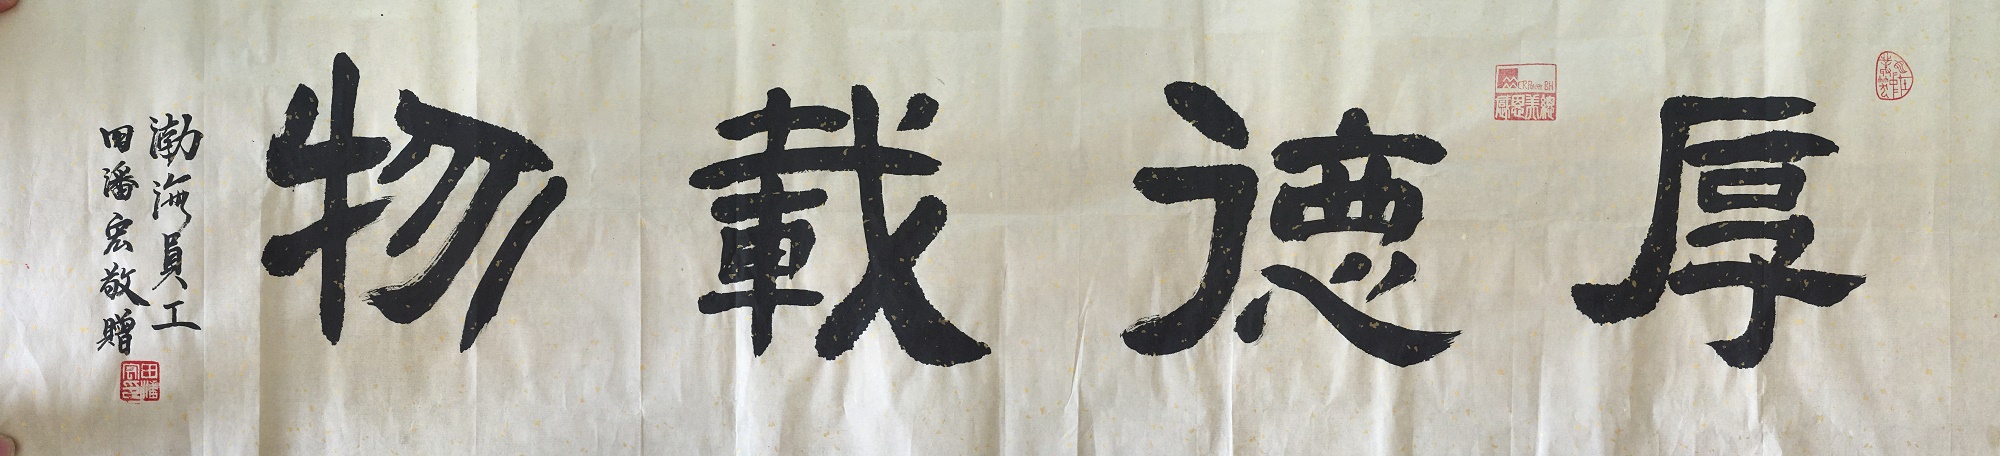 厚德載物
渤海員工
田潘宏敬贈